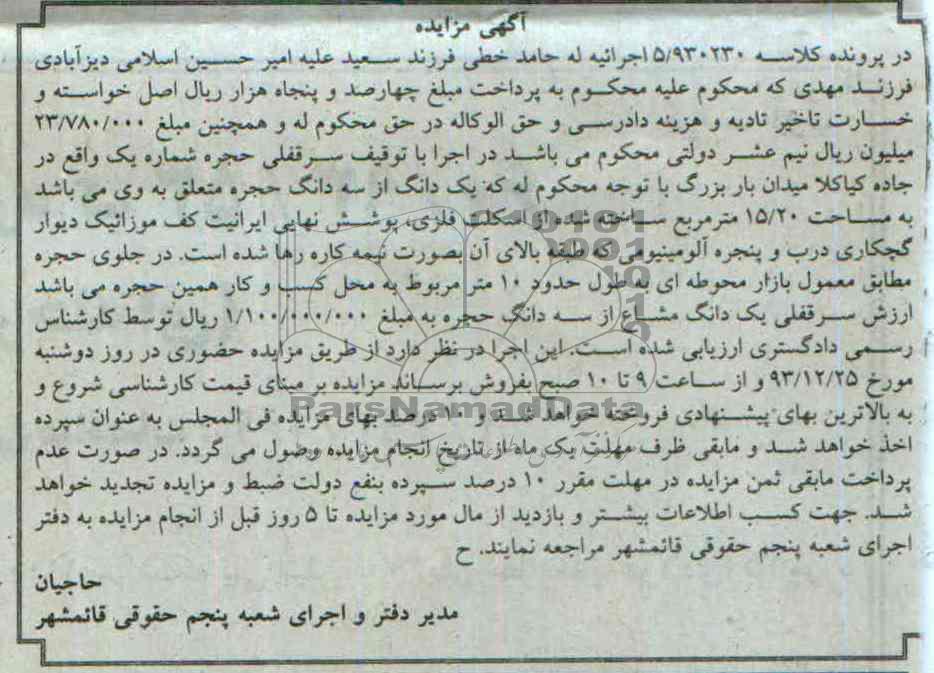 آگهی مزایده
در پرونده کلاسه ۵/۹۳۰۲۳۰ اجرائیه له حامد خطی فرزند سعید علیه امیر حسین اسلامی دیزآبادی
فرزند مهدی که محکوم علیه محکوم به پرداخت مبلغ چهارصد و پنجاه هزار ریال اصل خواسته و
خسارت تاخیر تادیه و هزینه دادرسی و حق الوکاله در حق محکوم له و همچنین مبلغ ۲۳/۷۸۰/۰۰۰
میلیون ریال نیم عشر دولتی محکوم می باشد در اجرا با توقیف سرقفلی حجره شماره یک واقع در
جاده کیاکلا میدان بار بزرگ با توجه محکوم له که یک دانگ از سه دانگ حجره متعلق به وی می باشد
به مساحت ۱۵/۲۰ مترمربع ساخته شده از اسکلت فلزی، پوشش نهایی ایرانیت کف موزائیک دیوار
گچکاری درب و پنجره آلومینیومی که طبقه بالای آن بصورت نیمه کاره رها شده است. در جلوی حجره
مطابق معمول بازار محوطه ای به طول حدود ۱۰ متر مربوط به محل کسب و کار همین حجره می باشد
ارزش سرقفلی یک دانگ مشاع از سه دانگ حجره به مبلغ ۱/۱۰۰/۰۰۰/۰۰۰ ریال توسط کارشناس
رسمی دادگستری ارزیابی شده است. این اجرا در نظر دارد از طریق مزایده حضوری در روز دوشنبه
مورخ ۹۳/۱۲/۲۵ و از ساعت ۹ تا ۱۰ صبح بفروش برساند مزایده بر مبنای قیمت کارشناسی شروع و
به بالاترین بهای پیشنهادی فروخته خواهد شد و ۱۰ درصد بهای مزایده فی المجلس به عنوان سپرده
اخذ خواهد شد و مابقی ظرف مهلت یک ماه از تاریخ انجام مزایده وصول می گردد. در صورت عدم
پرداخت مابقی ثمن مزایده در مهلت مقرر ۱۰ درصد سپرده بنفع دولت ضبط و مزایده تجدید خواهد
شد. جهت کسب اطلاعات بیشتر و بازدید از مال مورد مزایده تا ۵ روز قبل از انجام مزایده به دفتر
اجرای شعبه پنجم حقوقی قائمشهر مراجعه نمایند. ح
حاجیان
مدیر دفتر و اجرای شعبه پنجم حقوقی قائمشهر
ParsNamadData